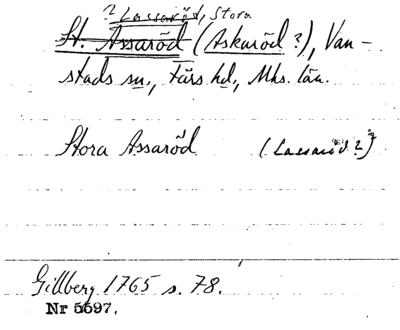 ? Lassaröd, Stora
St. Assaröd (Askaröd?), Van-
stads sn., Färs hd, Mhs. län.
Stora Assaröd (Lassaröd?)
Gillberg 1765 s. 78.
Nr 5597.